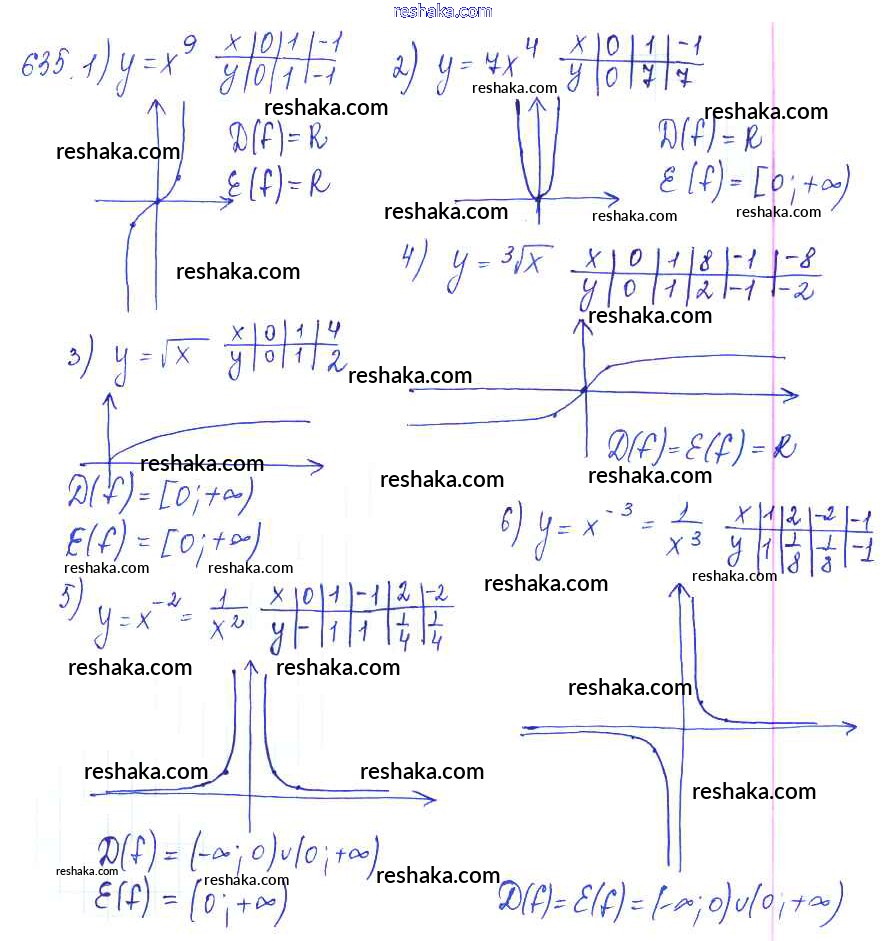 reshaka.com
635. 1) y = x⁹
x | 0 | 1 | -1
y | 0 | 1 | -1
reshaka.com
D(f) = R
reshaka.com
E(f) = R
reshaka.com
2) y = 7x⁴
x | 0 | 1 | -1
y | 0 | 7 | 7
reshaka.com
reshaka.com
D(f) = R
E(f) = [0; +∞)
reshaka.com
reshaka.com
reshaka.com
3) y = √x
x | 0 | 1 | 4
y | 0 | 1 | 2
reshaka.com
reshaka.com
D(f) = [0; +∞)
E(f) = [0; +∞)
reshaka.com
reshaka.com
4) y = ³√x
x | 0 | 1 | 8 | -1 | -8
y | 0 | 1 | 2 | -1 | -2
reshaka.com
D(f) = E(f) = R
reshaka.com
reshaka.com
5) y = x⁻² = 1/x²
x | 0 | 1 | -1 | 2 | -2
y | – | 1 | 1 | 1/4 | 1/4
reshaka.com
reshaka.com
reshaka.com
reshaka.com
D(f) = (-∞; 0)∪(0; +∞)
reshaka.com
E(f) = (0; +∞)
reshaka.com
reshaka.com
6) y = x⁻³ = 1/x³
x | 1 | 2 | -2 | -1
y | 1 | 1/8 | 1/8 | -1
reshaka.com
reshaka.com
reshaka.com
reshaka.com
D(f) = E(f) = (-∞; 0)∪(0; +∞)